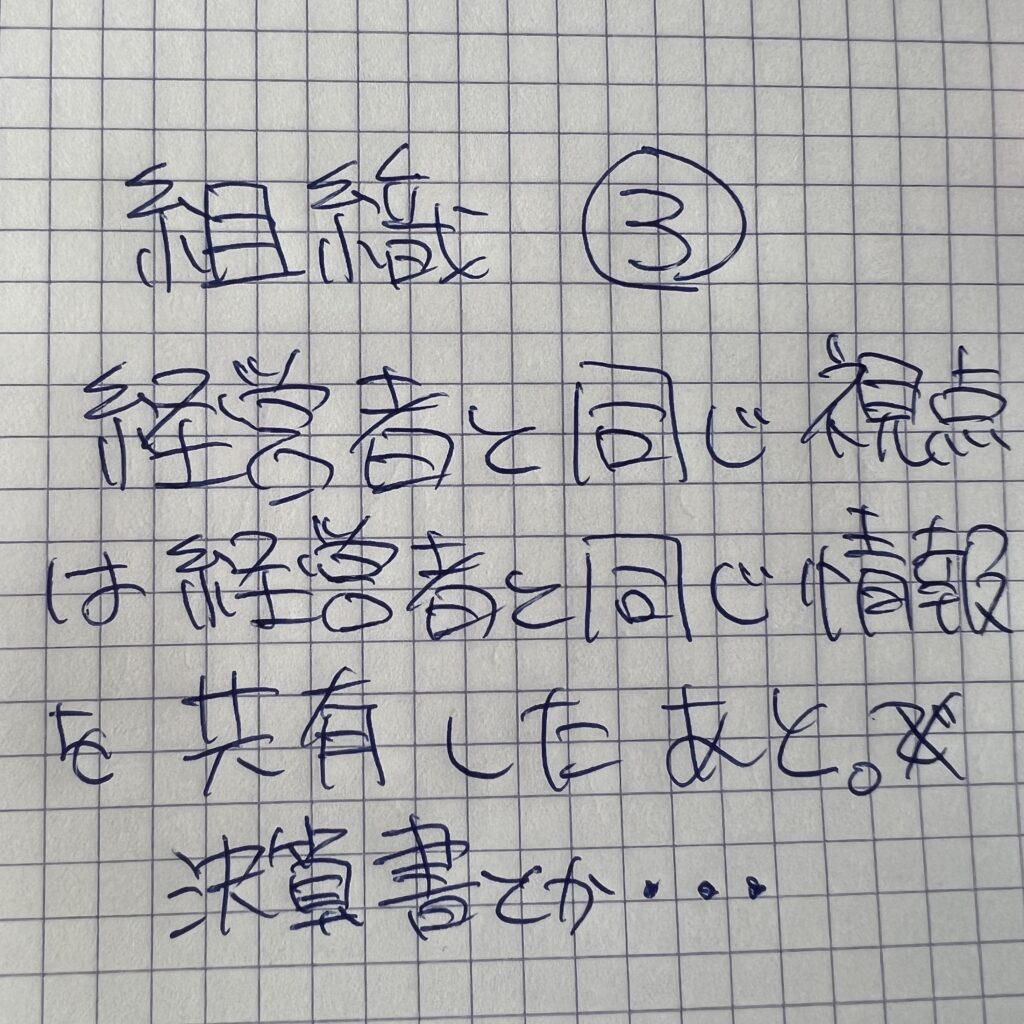 組織 ③
経営者と同じ視点
は経営者と同じ情報
を共有したあと。
決算書とか・・・